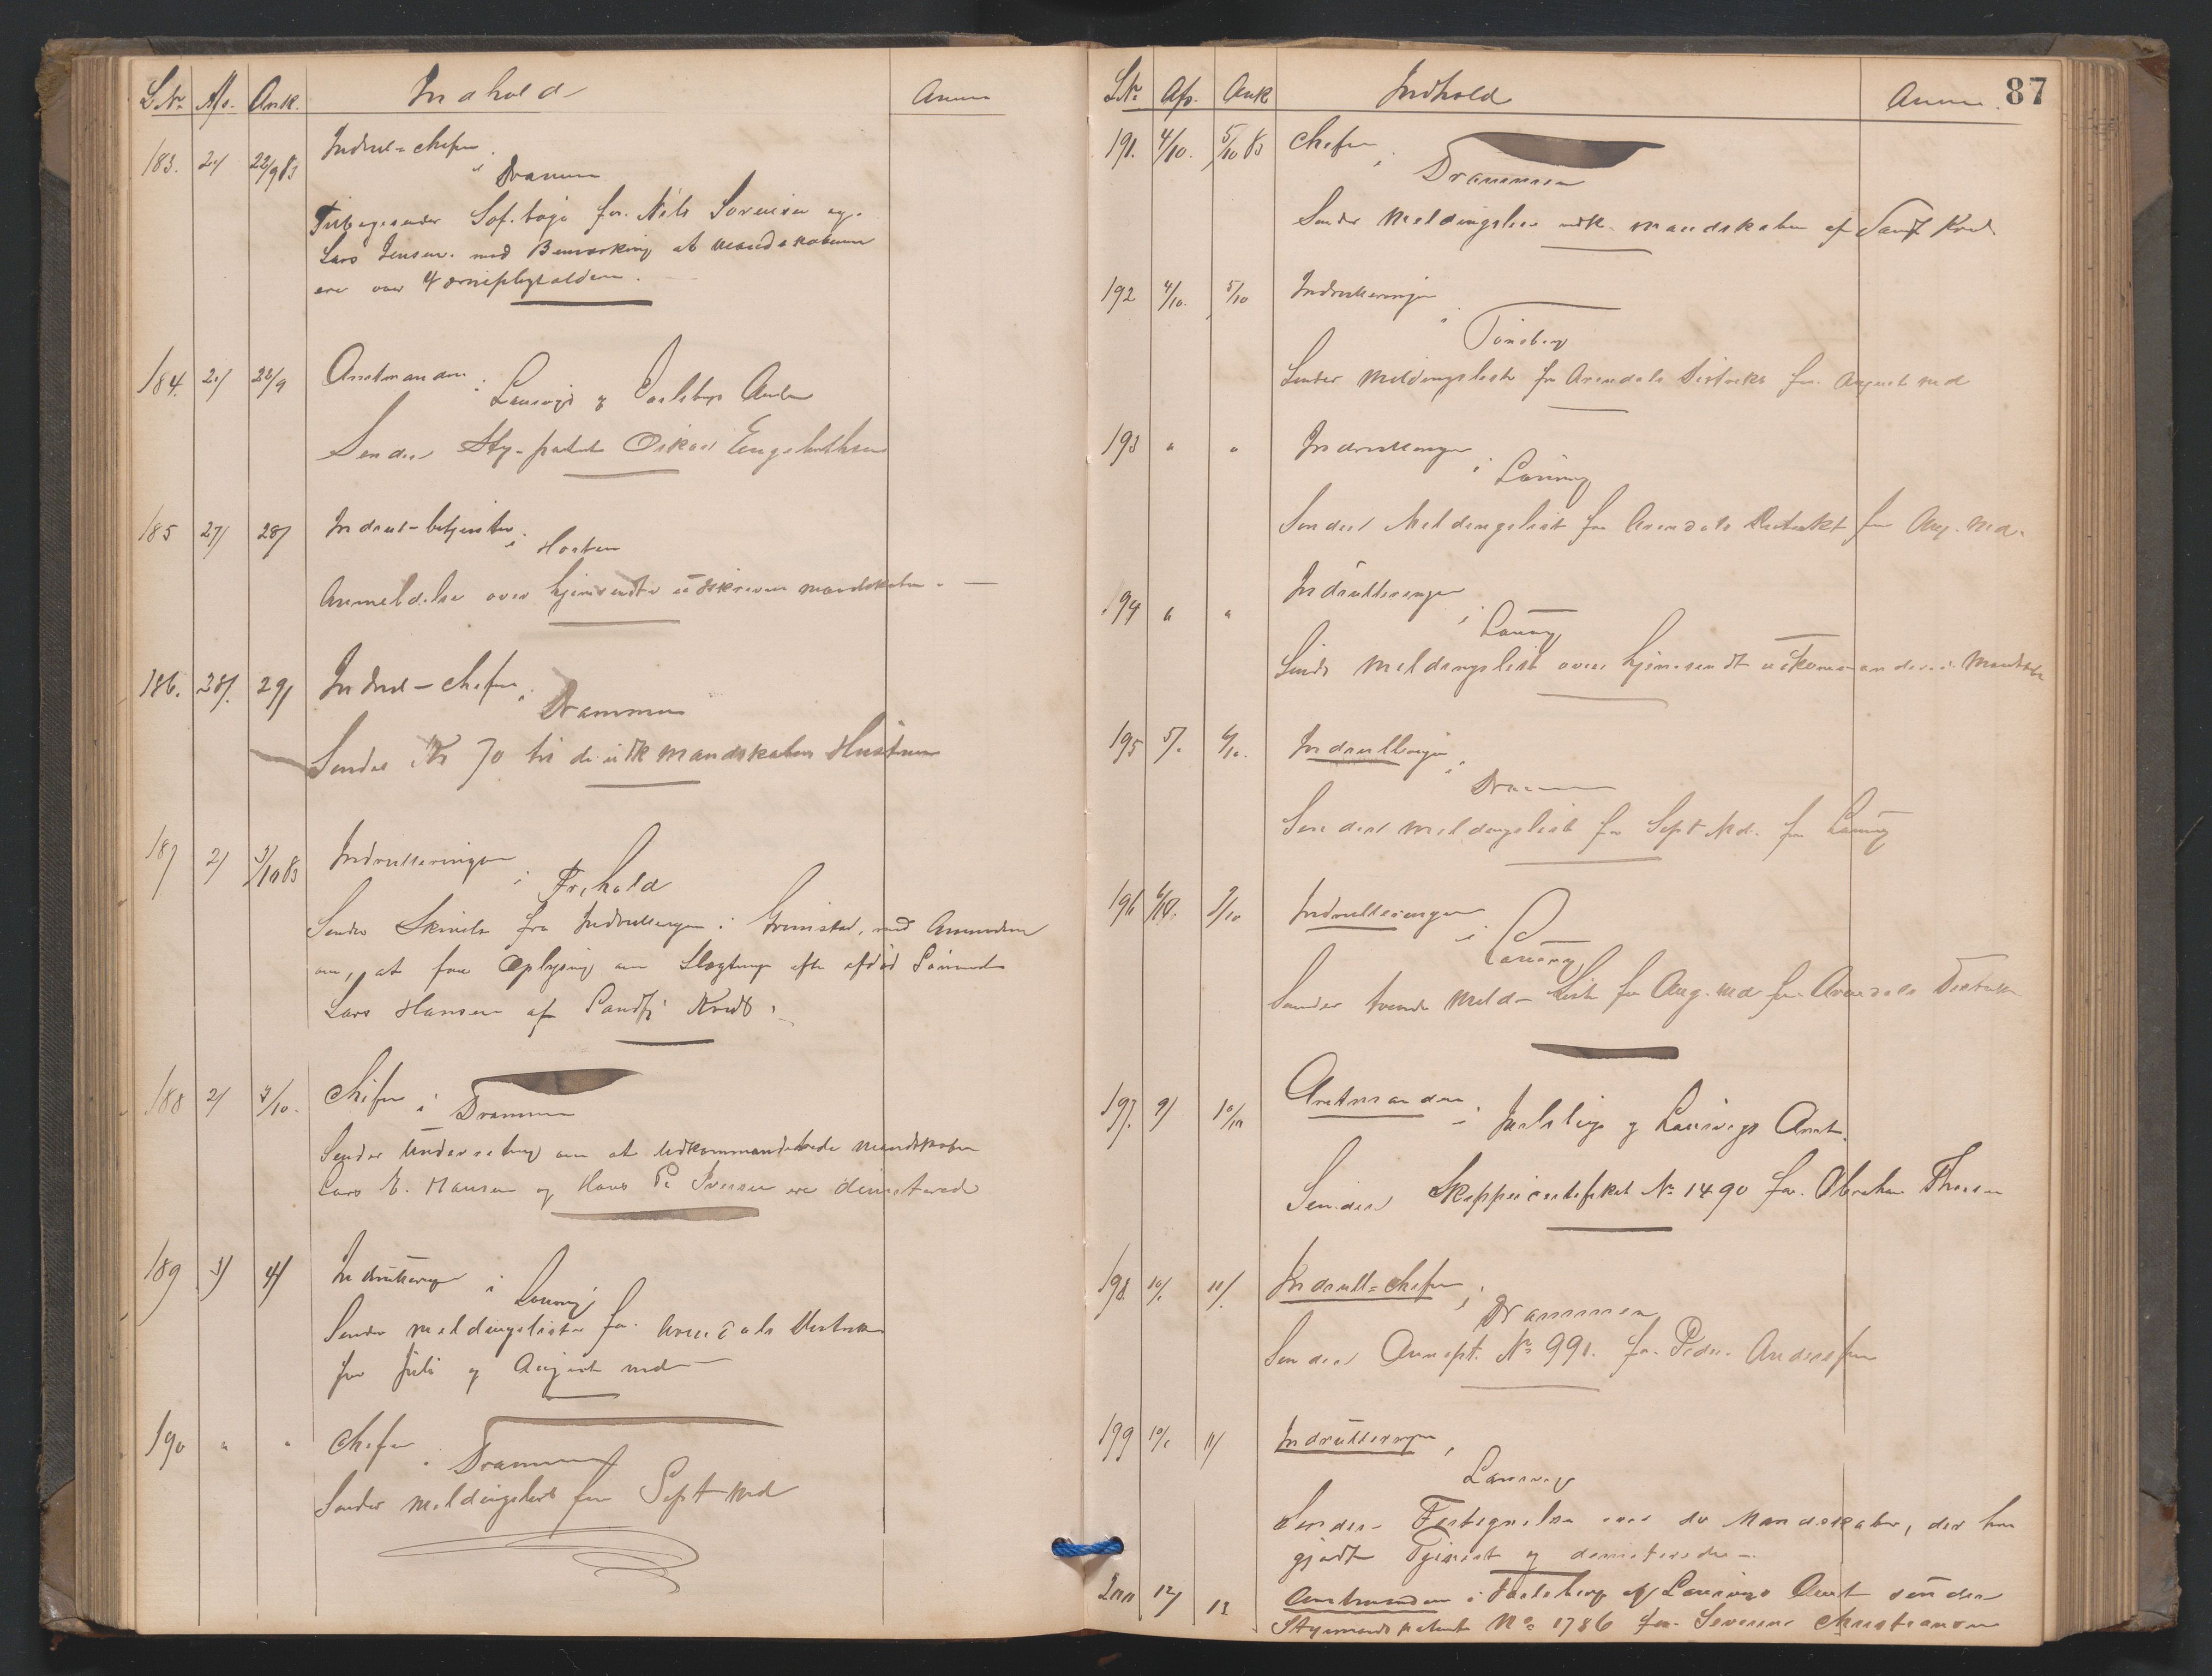 L.Nr. Afs. Ank. Indhold Anm
183. 21/ 22/9 83 Indrul=chefen
i Drammen
Tilbagesender Sof. bogs for Nils Sørensen og
Lars Jensen. med Bemærkning at mandskaberne
ere over Værnepligtalderen.
184. 21/ 22/9 Amtmanden
i Laurvigs og Jarlsbergs Amter
Sender Sty-patent Oskar Engebrethsen
185 27/ 28/ Indrul-betjenten
i Horten
Anmeldelse over hjemsendte udskrevne mandskaber. —
186. 28/. 29/ Indrul-chefen
i Drammen
Sender Kr 70 til de udk mandskabers Hustruer
187 2/ 3/10 83 Indrulleringen
i Fr.hald
Sender Skrivelse fra Indrulleringen i Grimstad, med Anmodn
om, at faa Oplysning om Slægtninge efter afdød Sømand
Lars Hansen af Sandfj Kreds.
188 2/ 3/10. Chefen i
Drammen
Sender Underretning om at Udkommanderede mandskaber
Lars E. Hansen og Hans P. Iversen ere dimiterede
189 3/ 4/ Indrulleringen
i Laurvig
Sender meldingslister for Arendals Distrikt
for Juli og August md —
190 " " Chefen
i Drammen
Sender meldingsliste for Sept md
L.Nr. Afs. Ank Indhold Anm. 87
191. 4/10. 5/10 83 Chefen
i Drammen
Sender Meldingsliste udk. mandskaber af Sandf Kreds
192 4/10. 5/10 Indrulleringen
i Tønsberg
Sender Meldingsliste fra Arendals Distrikt for August md
193 " " Indrulleringen
i Laurvig
Sender Meldingsliste fra Arendals Distrikt for Aug. Md.
194 " " Indrulleringen
i Laurvig
Sender Meldingsliste over hjemsendt udkommanderede Mandskab
195 5/. 6/10. Indrulleringen
i Drammen
Sender meldingsliste for Sept Md. fra Laurvig
196 6/10. 7/10 Indrulleringen
i Laurvig
Sender tvende Meld- Liste for Aug. md fra Arendals Distrikt
197. 9/ 10/10 Amtmanden
i Jarlsbergs og Laurvigs Amt.
Sender Skippercertifikat No 1490 for Abraham Thorsen
198 10/. 11/. Indrull=chefen
i Drammen
Sender Annept. No 991. for Peder Anderssen
199 10/. 11/ Indrulleringen
i Laurvig
Sender Fortegnelse over de Mandskaber, der har
gjort Tjeneste og dimiterede —
200 12/ 13 Amtmanden i Jarlsberg og Laurvigs Amt sender
Styrmandspatent No 1786 for Severin Christiansen